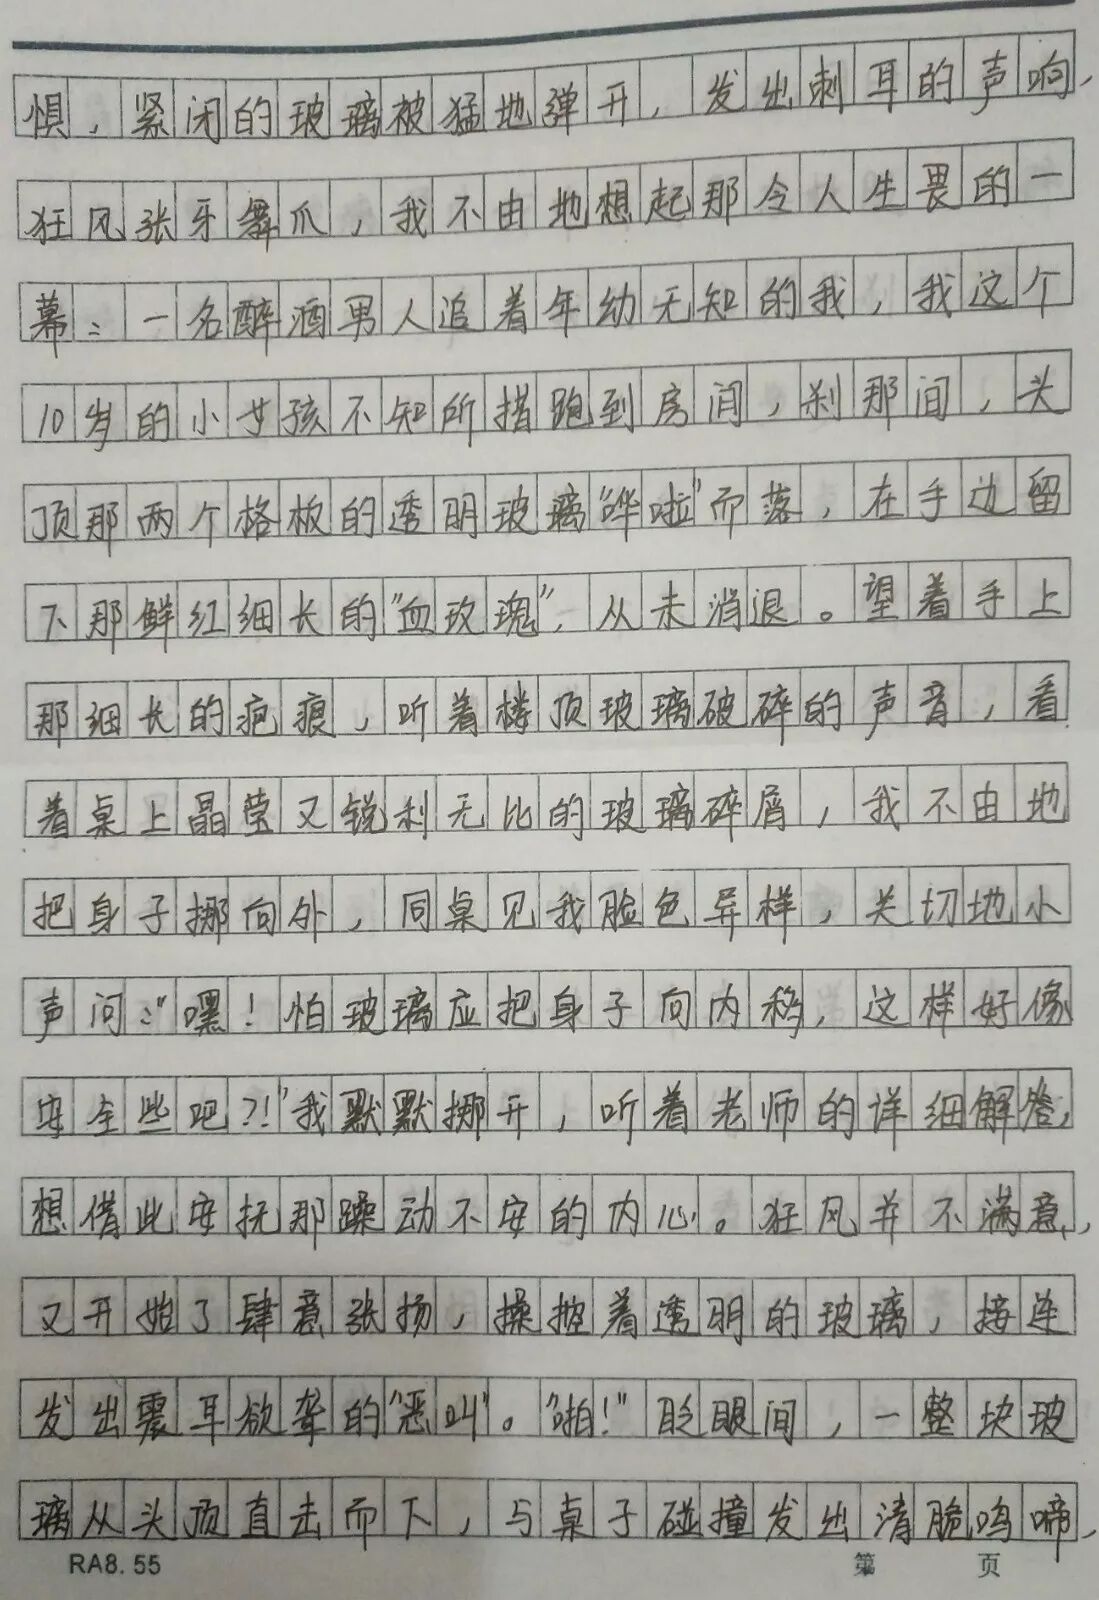 惧，紧闭的玻璃被猛地弹开，发出刺耳的声响，
狂风张牙舞爪，我不由地想起那令人生畏的一
幕：一名醉酒男人追着年幼无知的我，我这个
10岁的小女孩不知所措跑到房间，刹那间，头
顶那两个格板的透明玻璃“哗啦”而落，在手边留
下那鲜红细长的“血玫瑰”，从未消退。望着手上
那细长的疤痕，听着楼顶玻璃破碎的声音，看
着桌上晶莹又锐利无比的玻璃碎屑，我不由地
把身子挪向外，同桌见我脸色异样，关切地小
声问：“嘿！怕玻璃应把身子向内移，这样好像
安全些吧？！”我默默挪开，听着老师的详细解答，
想借此安抚那躁动不安的内心。狂风并不满意，
又开始了肆意张扬，操控着透明的玻璃，接连
发出震耳欲聋的“恶叫”。“啪！”眨眼间，一整块玻
璃从头顶直击而下，与桌子碰撞发出清脆鸣啼，
RA8.55 第 页